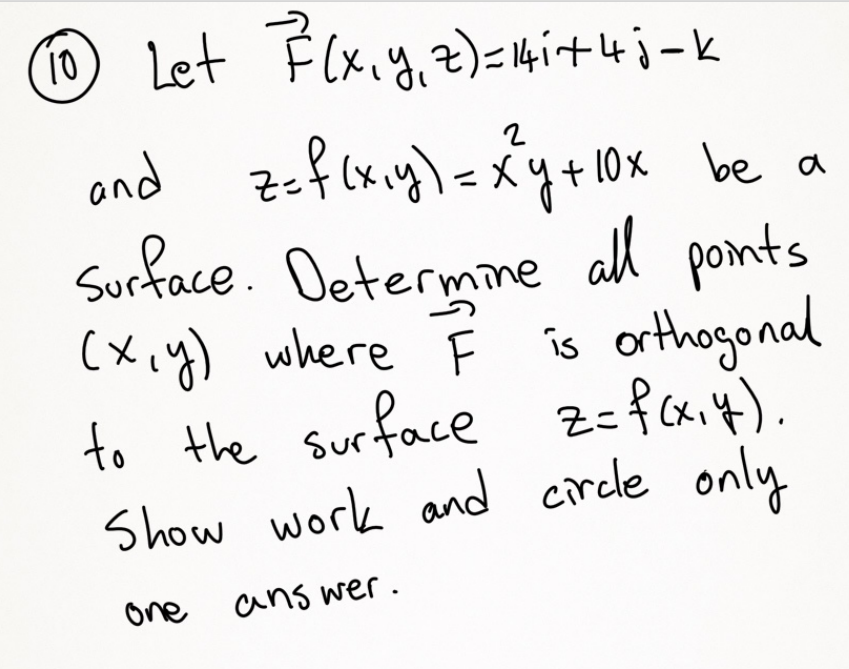 ⑩ Let F⃗(x,y,z)=14i+4j-k
and z=f(x,y)=x²y+10x be a
surface. Determine all points
(x,y) where F⃗ is orthogonal
to the surface z=f(x,y).
Show work and circle only
one answer.